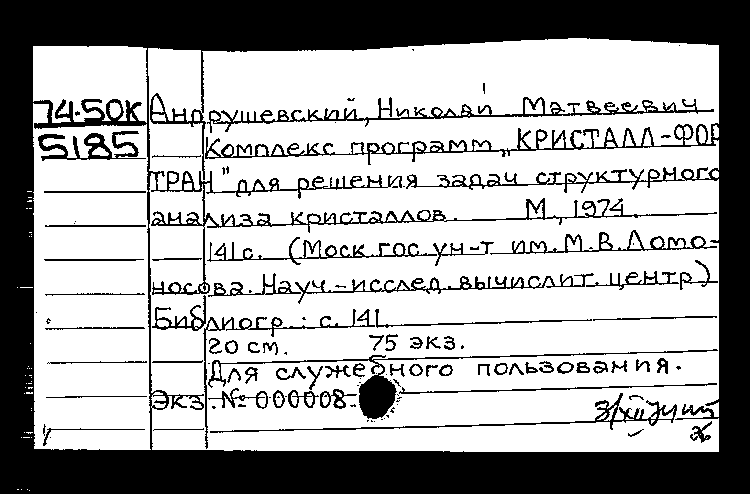 74-50К Андрушевский, Николай Матвеевич
5185 Комплекс программ „КРИСТАЛЛ-ФОР
ТРАН" для решения задач структурного
анализа кристаллов. М., 1974.
141 с. (Моск. гос. ун-т им. М.В. Ломо-
носова. Науч.-исслед. вычислит. центр)
Библиогр.: с. 141.
20 см. 75 экз.
Для служебного пользования.
Экз. № 000008